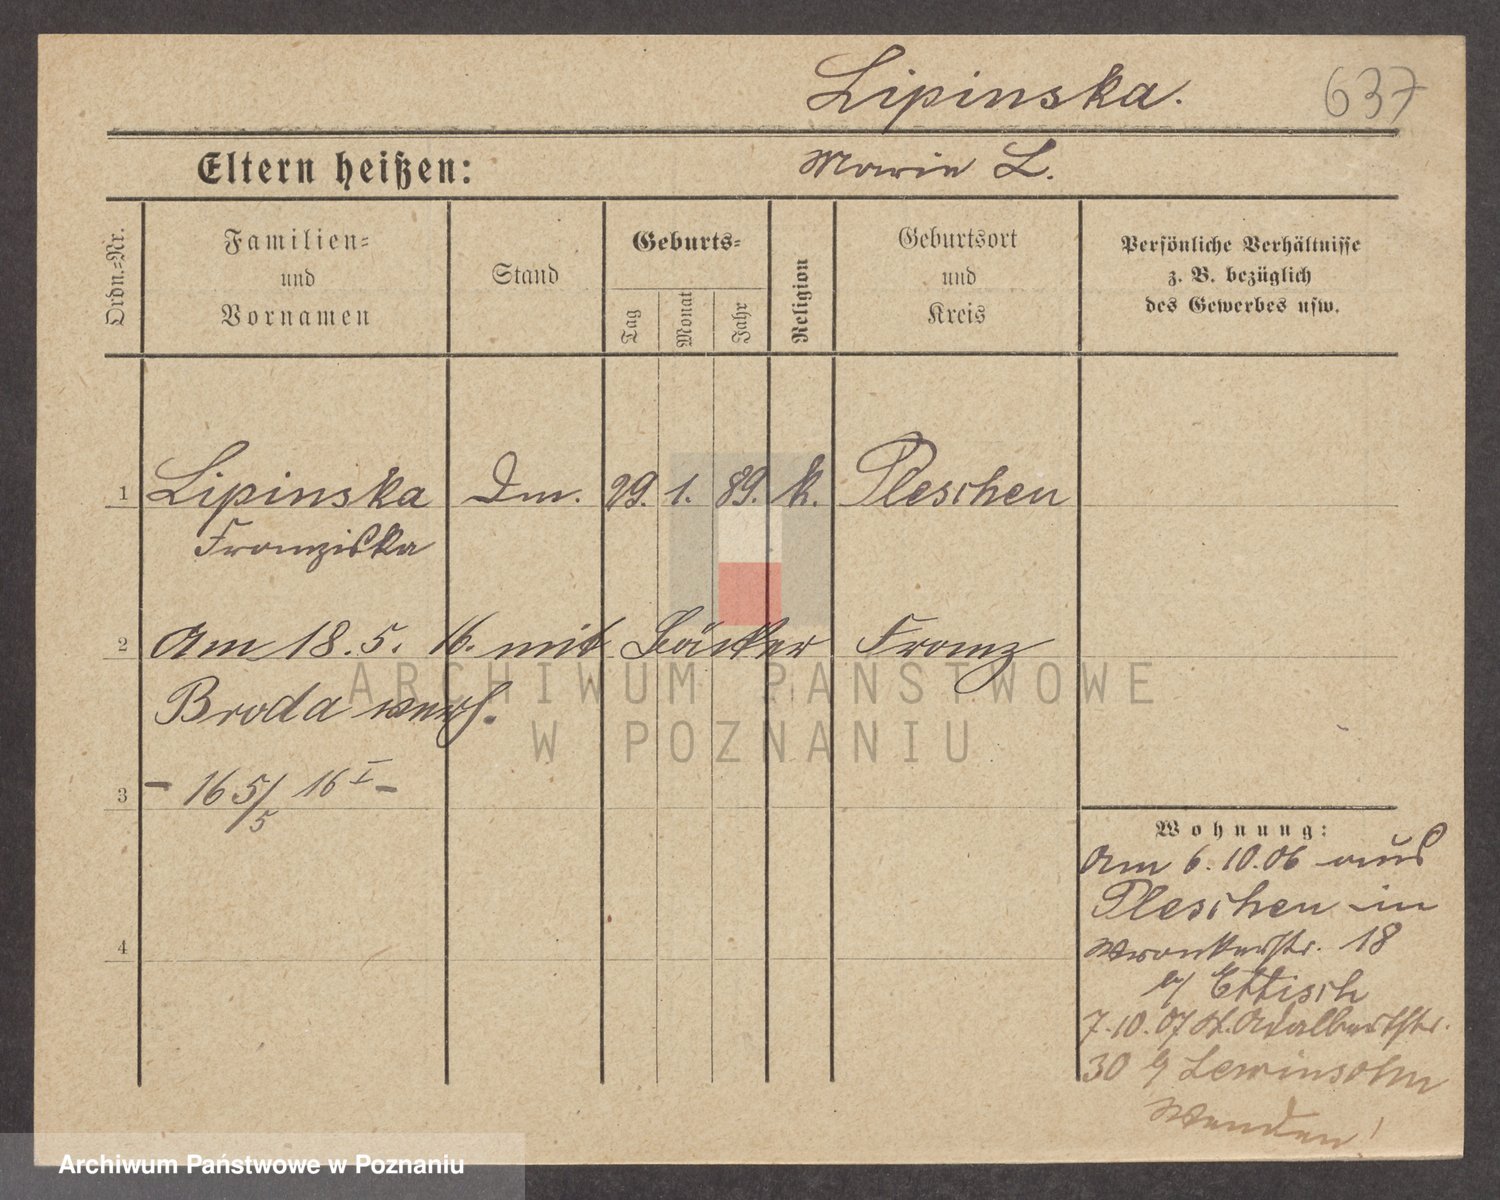 Lipinska.
637
Eltern heißen:
Marie L.
Ordn.-Nr.
Familien-
und
Vornamen
Stand
Geburts-
Tag
Monat
Jahr
Religion
Geburtsort
und
Kreis
Persönliche Verhältnisse
z. B. bezüglich
des Gewerbes usw.
1 Lipinska Dm. 29. 1. 89. k. Pleschen
Franziska
2 Am 18. 5. 16. mit Bäcker Franz
Broda verh.
3 - 16 5/5 16 I -
4
Wohnung:
Am 6. 10. 06 aus
Pleschen in
Wronkerstr. 18
b/ Ettisch
7.10.07 St. Adalbertstr.
30 b/ Lewinsohn
Wenden!
ARCHIWUM PAŃSTWOWE
W POZNANIU
Archiwum Państwowe w Poznaniu